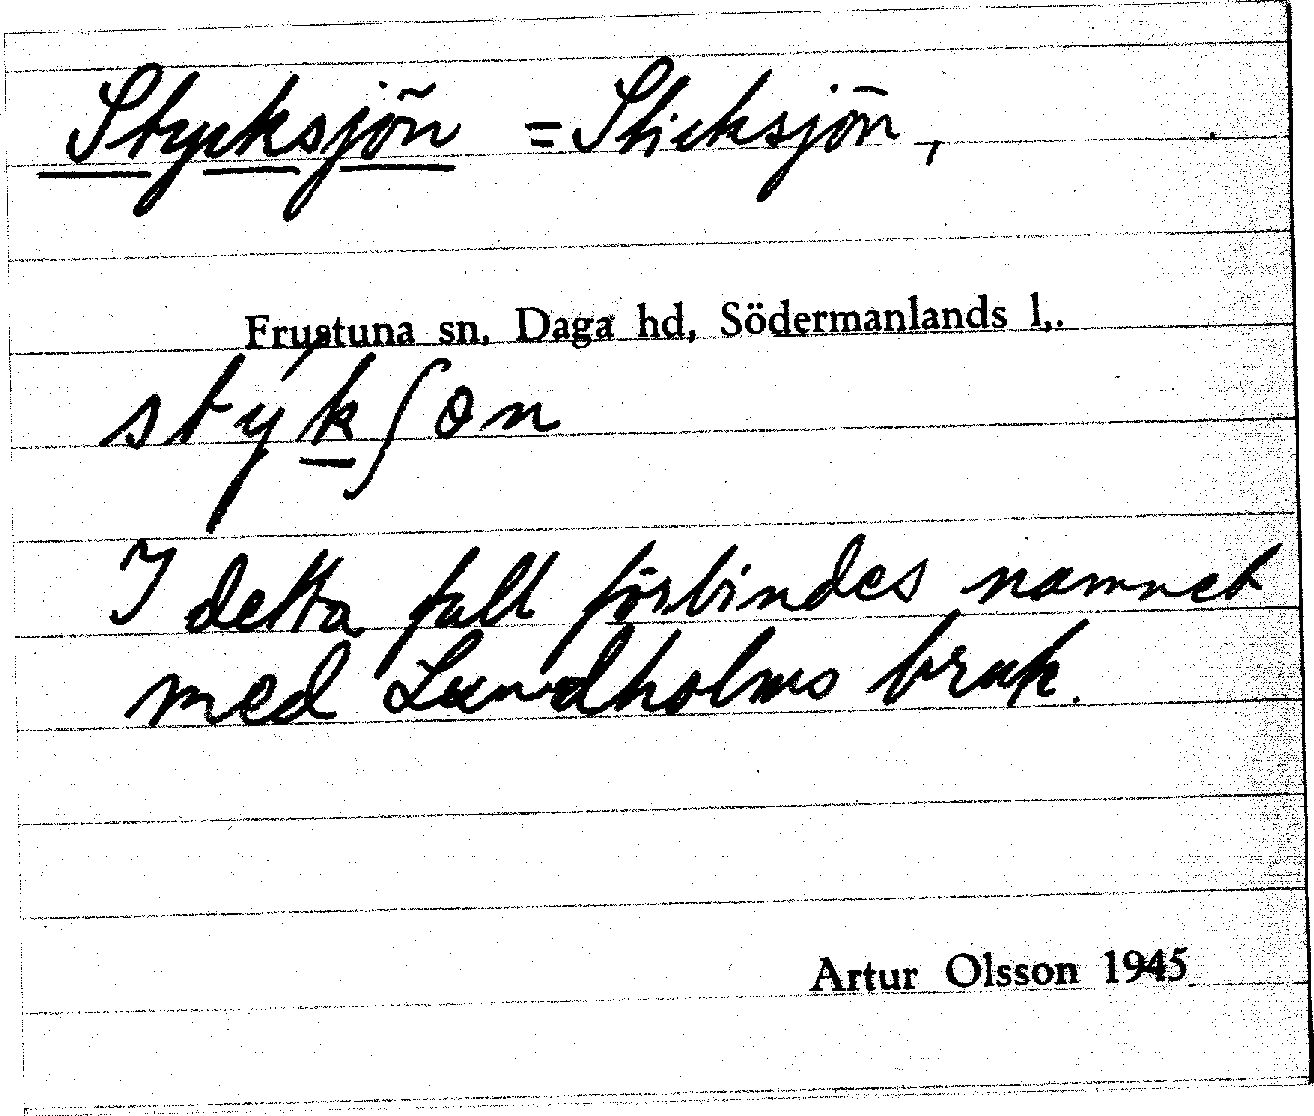 Stycksjön = Sticksjön,
Frustuna sn, Daga hd, Södermanlands l,.
stýkʃøn
I detta fall förbindes namnet
med Lundholms bruk.
Artur Olsson 1945